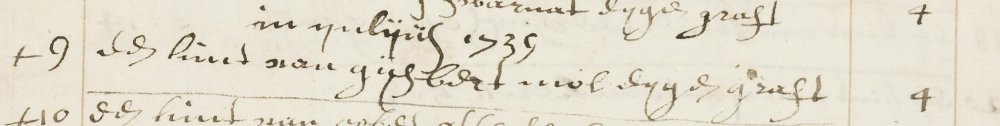 eygen graft 4
in julij 1739
+ 9 een kint van gijsbert mol eygen graft 4
+ 10 een kint van